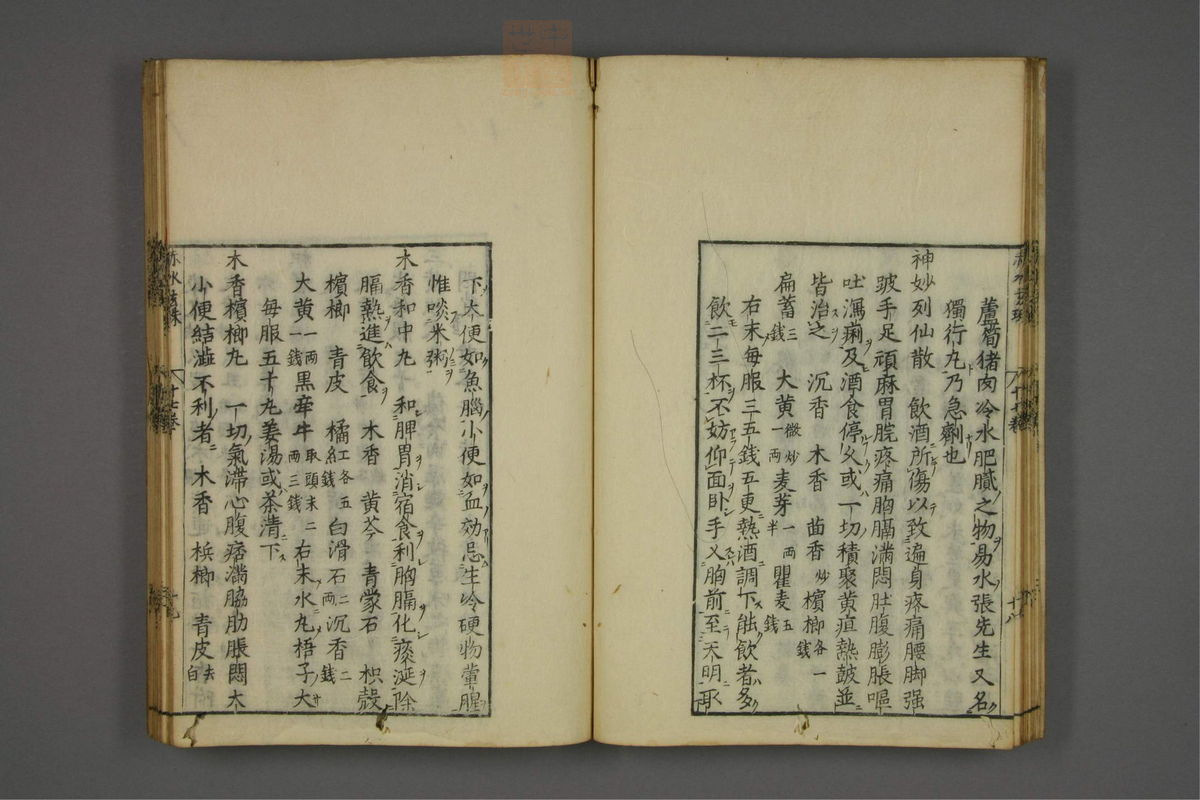 蘆筍猪肉冷水肥膩之物易水張先生又名
獨行丸乃急劑也
神妙列仙散　飲酒所傷以致遍身疼痛腰脚强
跛手足頑麻胃脘疼痛胸膈滿悶肚腹膨脹嘔
吐瀉痢及酒食停久或一切積聚黄疸熱皷並
皆治之　沉香　木香　茴香炒　檳榔各一錢
扁蓄三錢　大黄微炒一両　麦芽一両半　瞿麦五錢
右末每服三五錢五更熱酒調下能飲者多
飲二三杯不妨仰面卧手乂胸前至天明取
下大便如魚腦小便如血効忌生冷硬物葷腥
惟啖米粥
木香和中丸　和脾胃消宿食利胸膈化痰涎除
膈熱進飲食　木香　黄芩　青蒙石　枳殼
檳榔　青皮　橘紅各五錢　白滑石二両　沉香二錢
大黄一両一錢　黒牽牛取頭末二両三錢　右末水丸梧子大
每服五十丸姜湯或茶清下
木香檳榔丸　一切氣滯心腹痞滿脇肋脹悶大
小便結澁不利者　木香　梹榔　青皮去白
赤水玄珠
十七卷
十八